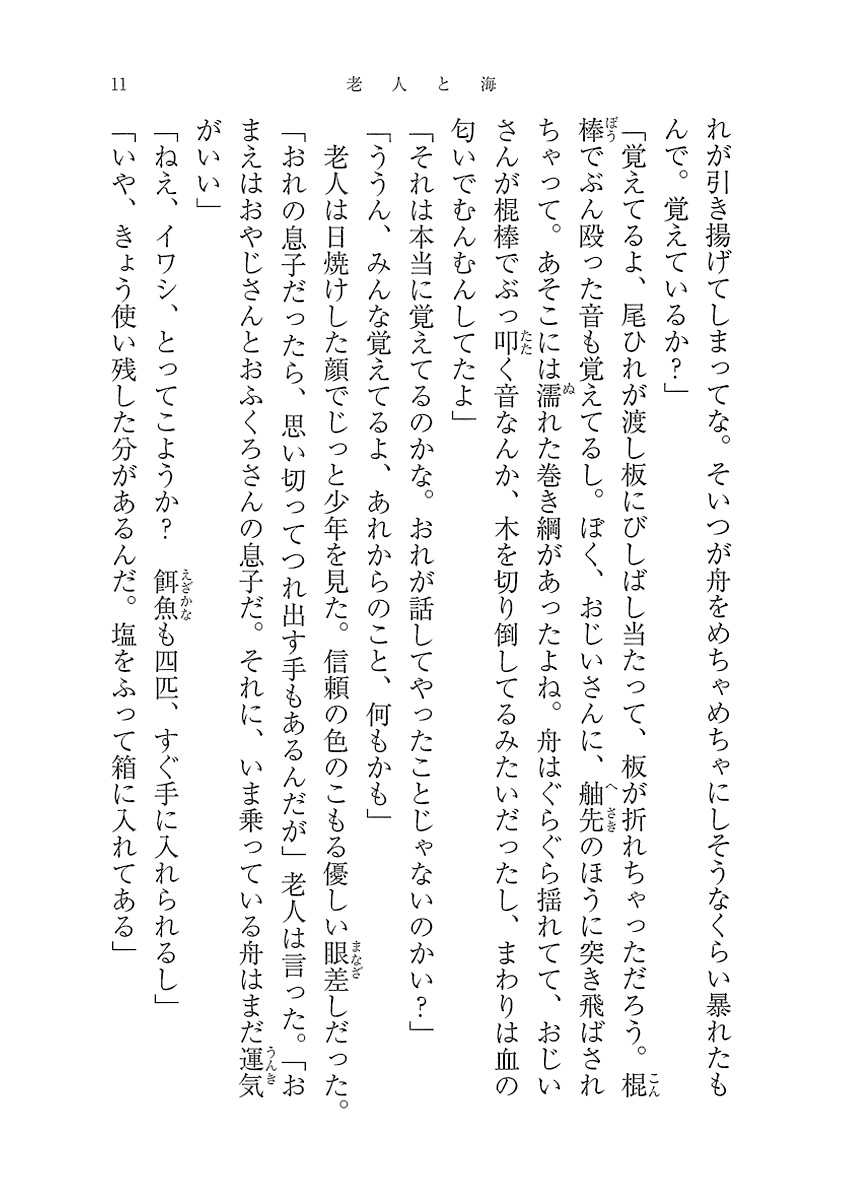 11
老人と海
れが引き揚げてしまってな。そいつが舟をめちゃめちゃにしそうなくらい暴れたも
んで。覚えているか？」
「覚えてるよ、尾ひれが渡し板にびしばし当たって、板が折れちゃっただろう。棍
棒でぶん殴った音も覚えてるし。ぼく、おじいさんに、舳先のほうに突き飛ばされ
ちゃって。あそこには濡れた巻き綱があったよね。舟はぐらぐら揺れてて、おじい
さんが棍棒でぶっ叩く音なんか、木を切り倒してるみたいだったし、まわりは血の
匂いでむんむんしてたよ」
「それは本当に覚えてるのかな。おれが話してやったことじゃないのかい？」
「ううん、みんな覚えてるよ、あれからのこと、何もかも」
老人は日焼けした顔でじっと少年を見た。信頼の色のこもる優しい眼差しだった。
「おれの息子だったら、思い切ってつれ出す手もあるんだが」老人は言った。「お
まえはおやじさんとおふくろさんの息子だ。それに、いま乗っている舟はまだ運気
がいい」
「ねえ、イワシ、とってこようか？　餌魚も四匹、すぐ手に入れられるし」
「いや、きょう使い残した分があるんだ。塩をふって箱に入れてある」
こん
ぼう
へさき
ぬ
たた
まなざ
うんき
えざかな